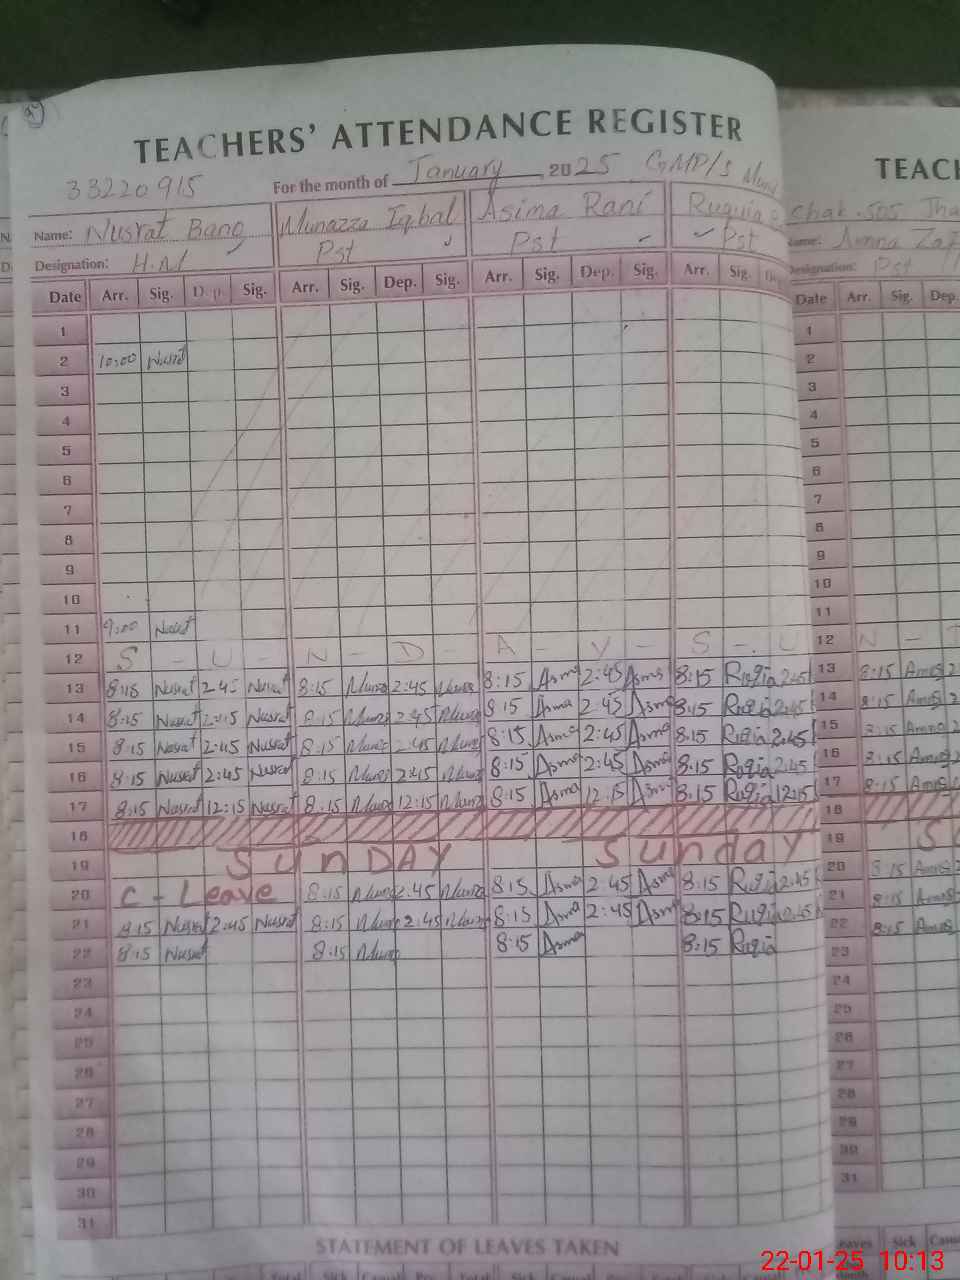 TEACHERS' ATTENDANCE REGISTER
TEACH
33220915 For the month of January, 2025 GMP/S
Name: Nusrat Bano Munazza Iqbal Asima Rani Ruquia
Chak.505
Name: Amna
Designation: H.M Pst Pst Pst
Designation: Pst
Date Arr. Sig. Dep. Sig. Arr. Sig. Dep. Sig. Arr. Sig. Dep. Sig. Arr. Sig. De
Date Arr. Sig. Dep.
1 1
2 10:00 Nusrat 2
3 3
4 4
5 5
6 6
7 7
8 8
9 9
10 10
11 9:00 Nusrat 11
12 S - U - N - D - A - Y - S - U 12 N -
13 8:15 Nusrat 2:45 Nusrat 8:15 Muna 2:45 Muna 8:15 Asma 2:45 Asma 8:15 Ruqia 2:45 13 8:15 Amna
14 8:15 Nusrat 2:45 Nusrat 8:15 Muna 2:45 Muna 8:15 Asma 2:45 Asma 8:15 Ruqia 2:45 14 8:15 Amna
15 8:15 Nusrat 2:45 Nusrat 8:15 Muna 2:45 Muna 8:15 Asma 2:45 Asma 8:15 Ruqia 2:45 15 8:15 Amna
16 8:15 Nusrat 2:45 Nusrat 8:15 Muna 2:45 Muna 8:15 Asma 2:45 Asma 8:15 Ruqia 2:45 16 8:15 Amna
17 8:15 Nusrat 12:15 Nusrat 8:15 Muna 12:15 Muna 8:15 Asma 12:15 Asma 8:15 Ruqia 12:15 17 8:15 Amna
18 18
19 SunDAY Sunday 19 S
20 C - Leave 8:15 Muna 2:45 Muna 8:15 Asma 2:45 Asma 8:15 Ruqia 2:45 20 8:15 Amna
21 8:15 Nusrat 2:45 Nusrat 8:15 Muna 2:45 Muna 8:15 Asma 2:45 Asma 8:15 Ruqia 2:45 21 8:15 Amna
22 8:15 Nusrat 8:15 Muna 8:15 Asma 8:15 Ruqia 22 8:15 Amna
23 23
24 24
25 25
26 26
27 27
28 28
29 29
30 30
31 31
STATEMENT OF LEAVES TAKEN
Leaves Sick Casu
Total Sick Casual Total Sick Casual
22-01-25 10:13